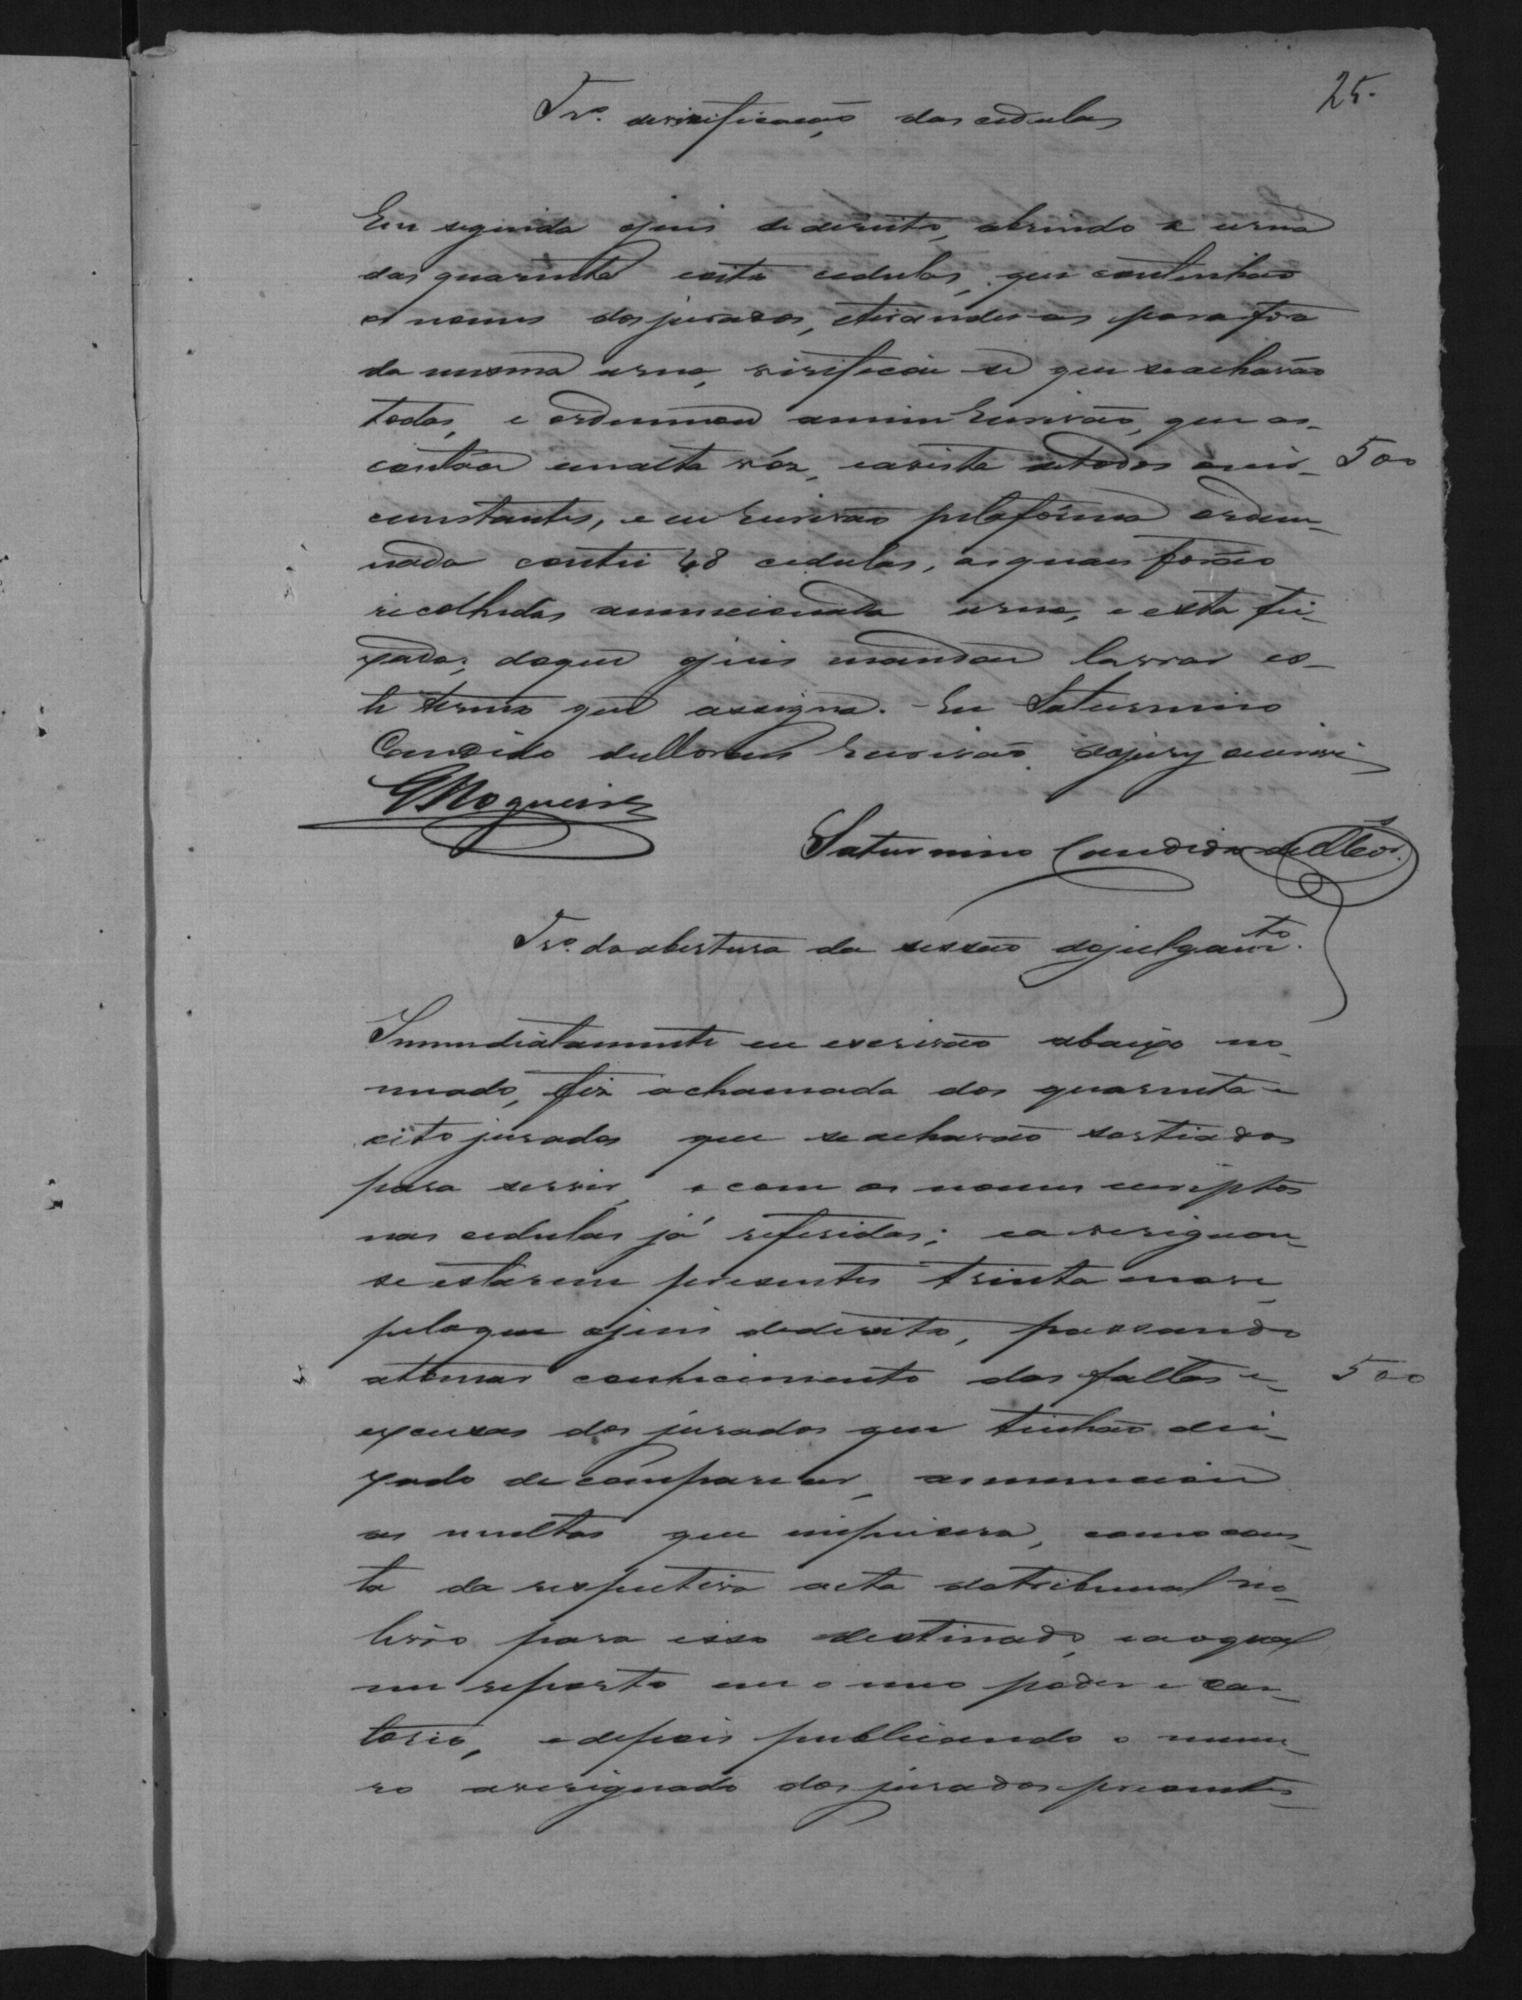 25.
Tr.º de virificação das cedulas
Em seguida o juis de direito, abrindo a urna
das quarenta e oito cedulas, que continhão
os nomes dos jurados, e tirando-as para fora
da mesma urna, virificou-se que se achavão
todas, e ordennou a mim Escrivão, que as
contáce em alta vóz, e a vista de todos os cir- 500
cunstantes, e eu Escrivão pela fórma orden-
nada contei 48 cedulas, as quaes forão
recolhidas a mencionada urna, e esta fei-
xada; do que o juis mandou lavrar es-
te termo que assigna. Eu Saturnino
Candido de Moraes Escrivão do jury escrivi
G Nogueira
Saturnino Candido de Mor.s
Tr.º da abertura da sessão do julgam.to
Immediatamente eu escrivão abaixo no-
miado, fiz a chamada dos quarenta e
oito jurados que se acharão sortiados
para servir, e com os nomes escriptos
nas cedulas já referidas; e averiguou-
se estarem presentes trinta e nove,
pelo que o juis de direito, passando
a tomar conhecimento das faltas e- 500
excuzas dos jurados que tinhão dei-
xado de comparecer, annunciou
as multas que impusera, como cons-
ta da respectiva acta do tribunal no-
livro para isso destinado, e ao qual
me reporto em o meu poder e car-
torio, e depois publicando o nume-
ro averiguado dos jurados presentes-